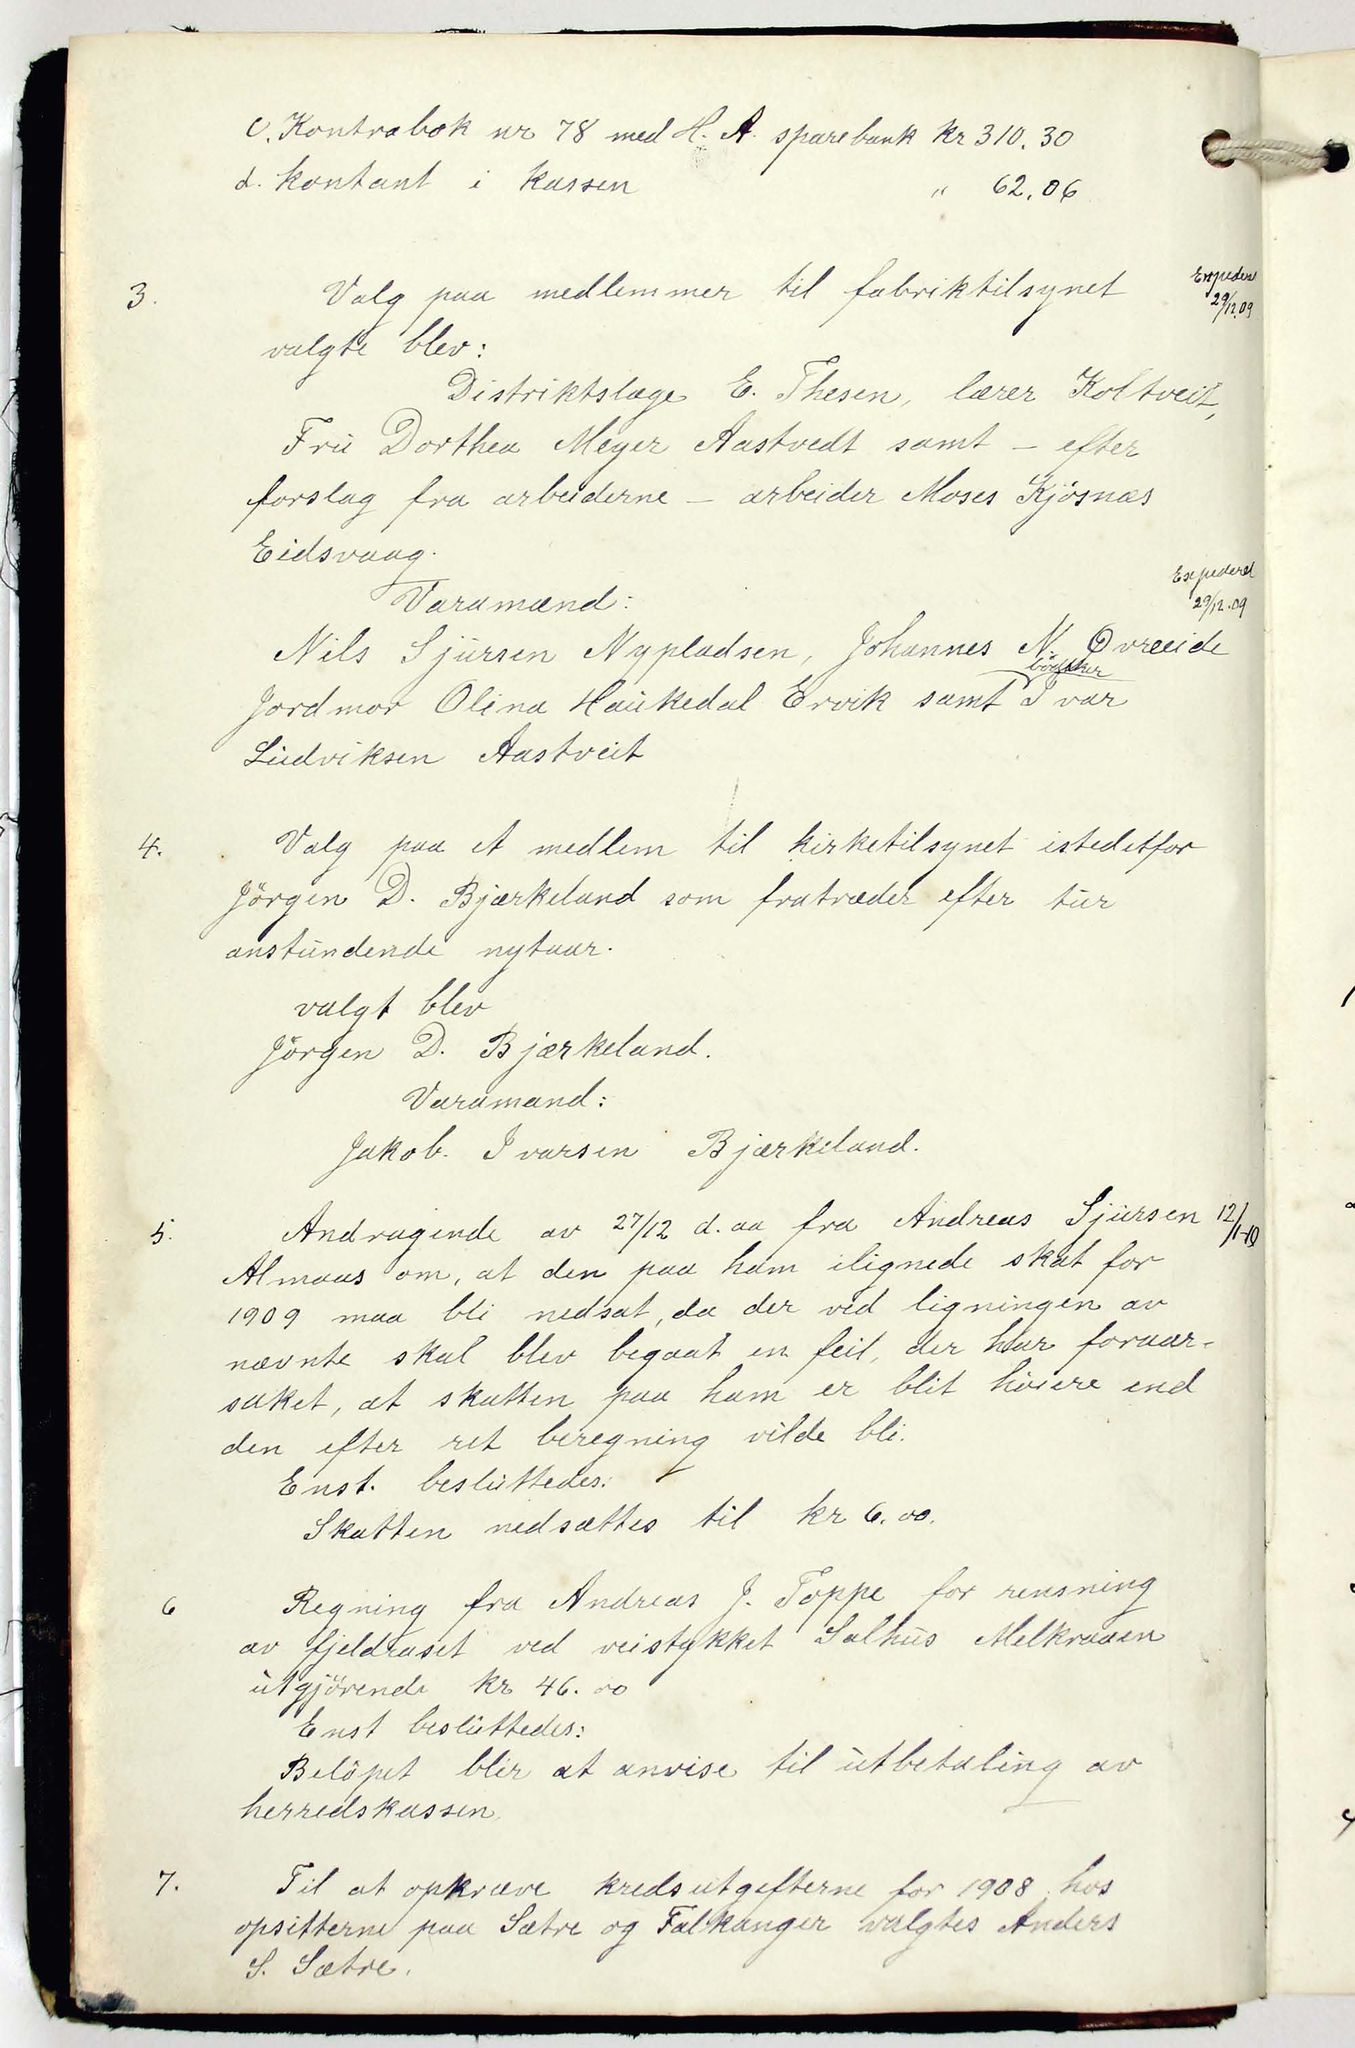 c. Kontrabok nr 78 med H. A. sparebank kr 310.30
d. kontant i kassen " 62.06
3. Valg paa medlemmer til fabriktilsynet
Expedert 29/12.09
valgte blev:
Distriktslæge E. Thesen, lærer Koltveit,
Fru Dorthea Meyer Aastvedt samt – efter
forslag fra arbeiderne – arbeider Moses Kjösnæs
Eidsvaag.
Varamænd:
Expederet 29/12.09
Nils Sjursen Nypladsen, Johannes N. Øvreeide
bödtker
Jordmor Olina Haukedal Ervik samt Ivar
Ludviksen Aastveit
4. Valg paa et medlem til kirketilsynet istedetfor
Jörgen D. Bjærkeland som fratræder efter tur
anstundende nytaar.
valgt blev
Jörgen D. Bjærkeland.
Varamand:
Jakob. Ivarsen Bjærkeland.
5. Andragende av 27/12 d. aa fra Andreas Sjursen 12/1-10
Almaas om, at den paa ham ilignede skat for
1909 maa bli nedsat, da der ved ligningen av
nævnte skal blev begaat en feil, der har foraar-
saket, at skatten paa ham er blit höiere end
den efter ret beregning vilde bli.
Enst. besluttedes:
Skatten nedsættes til kr 6.00.
6 Regning fra Andreas J. Toppe for rensning
av fjeldraset ved veistykket Salhus Melkraaen
utgjörende kr 46.00
Enst besluttedes:
Belöpet blir at anvise til utbetaling av
herredskassen.
7. Til at opkræve kredsutgifterne for 1908 hos
opsitterne paa Sætre og Falkanger valgtes Anders
S. Sætre.